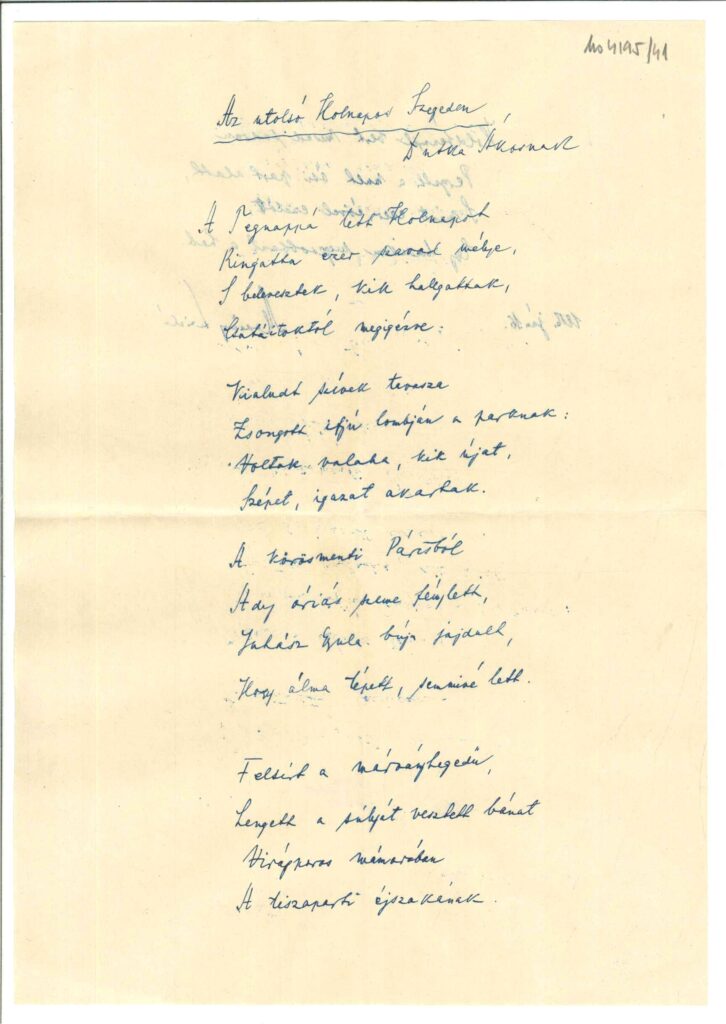 No 4195/41
Az utolsó Holnapos Szegeden
Dutka Ákosnak
A Tegnappá lett Holnapot
Ringatta ezer szavad mélye,
S belevesztek, kik hallgattak,
megigézve:
Kialudt szívek tavasza
Zsongott ifjú lombján a parknak:
Voltak valaha, kik újat,
Szépet, igazat akartak.
A körösmenti Párisból
Ady óriás szeme fénylett,
Juhász Gyula búja jajdult,
Hogy álma tépett, semmivé lett.
Felsírt a márványhegedü,
Lengett a súlyát vesztett bánat
Virágporos mámorában
A tiszaparti éjszakának.